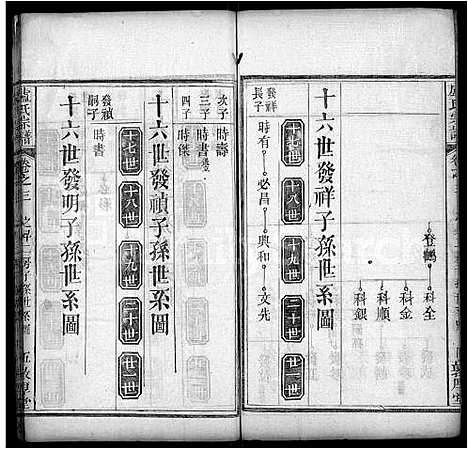 盧氏宗譜
登鶴
科全
科亨
科順
科銀
十六世發祥子孫世系圖
十七世
十八世
十九世
二十世
廿一世
發祥長子
時有
必昌
興和
文先
次子
時壽
三子
時書
四子
時傑
十六世發禎子孫世系圖
十七世
十八世
十九世
二十世
廿一世
發禎嗣子
時書
十六世發明子孫世系圖
盧氏宗譜
卷之三